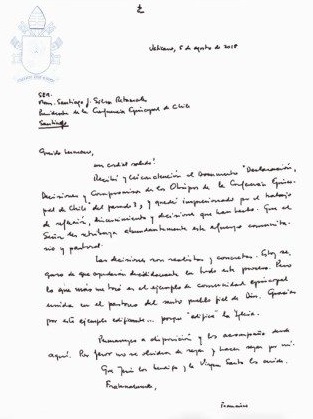 Vaticano, 5 de agosto de 2018
Mons. Santiago J. Silva Retamales
Presidente de la Conferencia Episcopal de Chile
Santiago
Querido hermano,
un cordial saludo!
Recibí y leí con atención el Documento "Declaración,
Decisiones y Compromisos de los Obispos de la Conferencia Episco-
pal de Chile" del pasado 3, y quedé impresionado por el trabajo
de reflexión, discernimiento y decisiones que han hecho. Que el
Señor les retribuya abundantemente este esfuerzo comunita-
rio y pastoral.
Las decisiones son realistas y concretas. Estoy se-
guro de que ayudarán decididamente en todo este proceso. Pero
lo que más me tocó es el ejemplo de comunidad episcopal
unida en el pastoreo del santo pueblo fiel de Dios. Gracias
por este ejemplo edificante... porque "edifica" la Iglesia.
Permanezco a disposición y los acompaño desde
aquí. Por favor no se olviden de rezar y hacer rezar por mí.
Que Jesús los bendiga y la Virgen Santa los cuide.
Fraternalmente,
Francisco